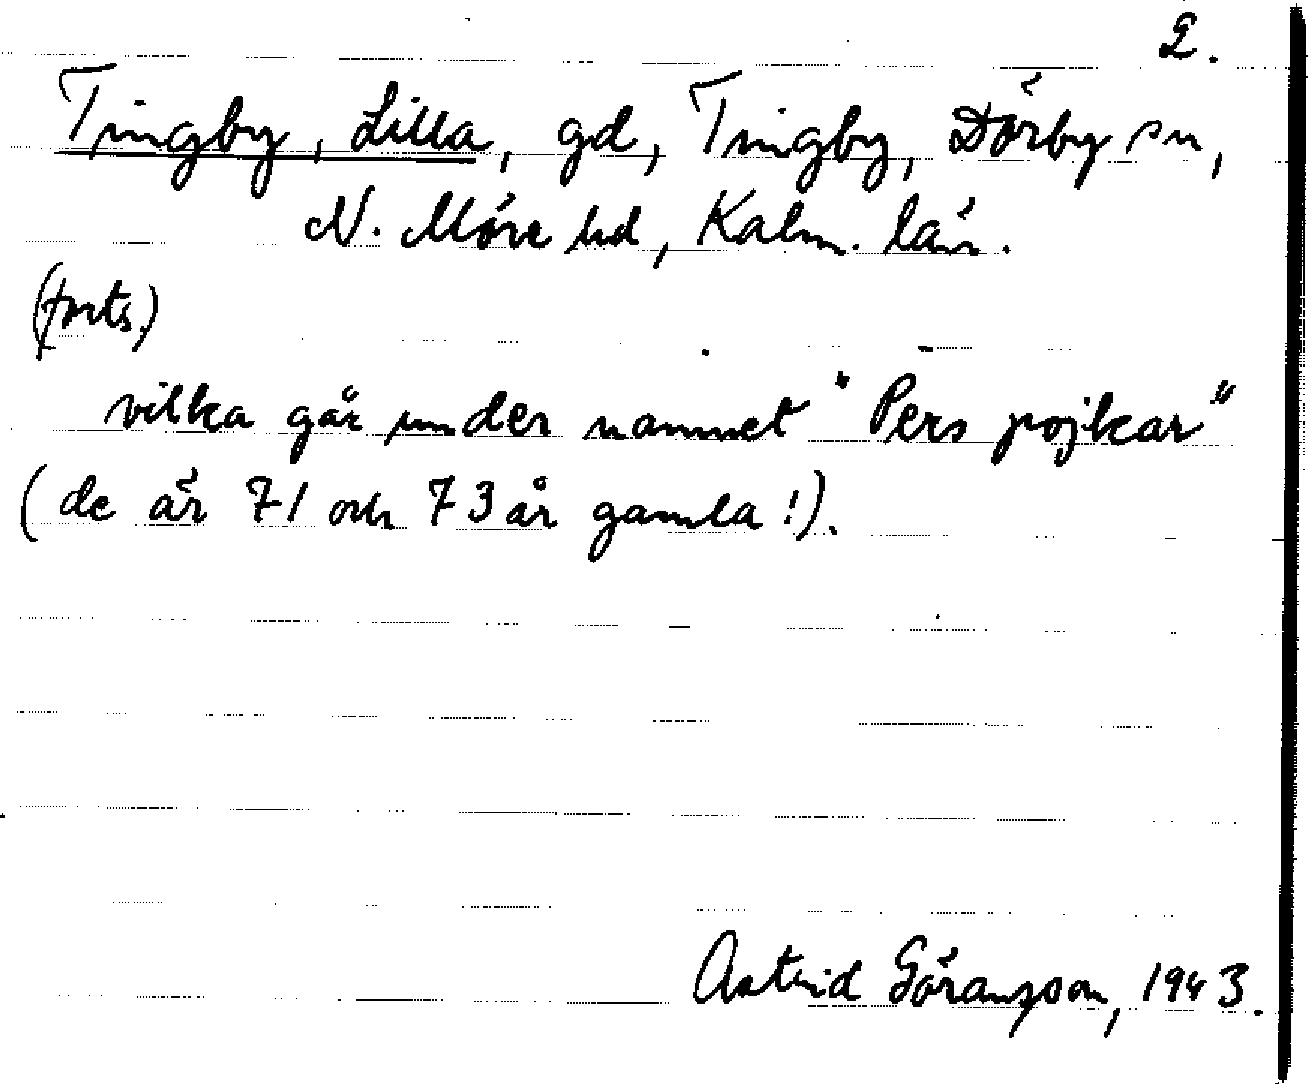 2.
Tingby, Lilla, gd, Tingby, Dörby sn,
N. Möre hd, Kalm. län.
(forts.)
vilka går under namnet "Pers pojkar"
(de är 71 och 73 år gamla!).
Astrid Göransson, 1943.